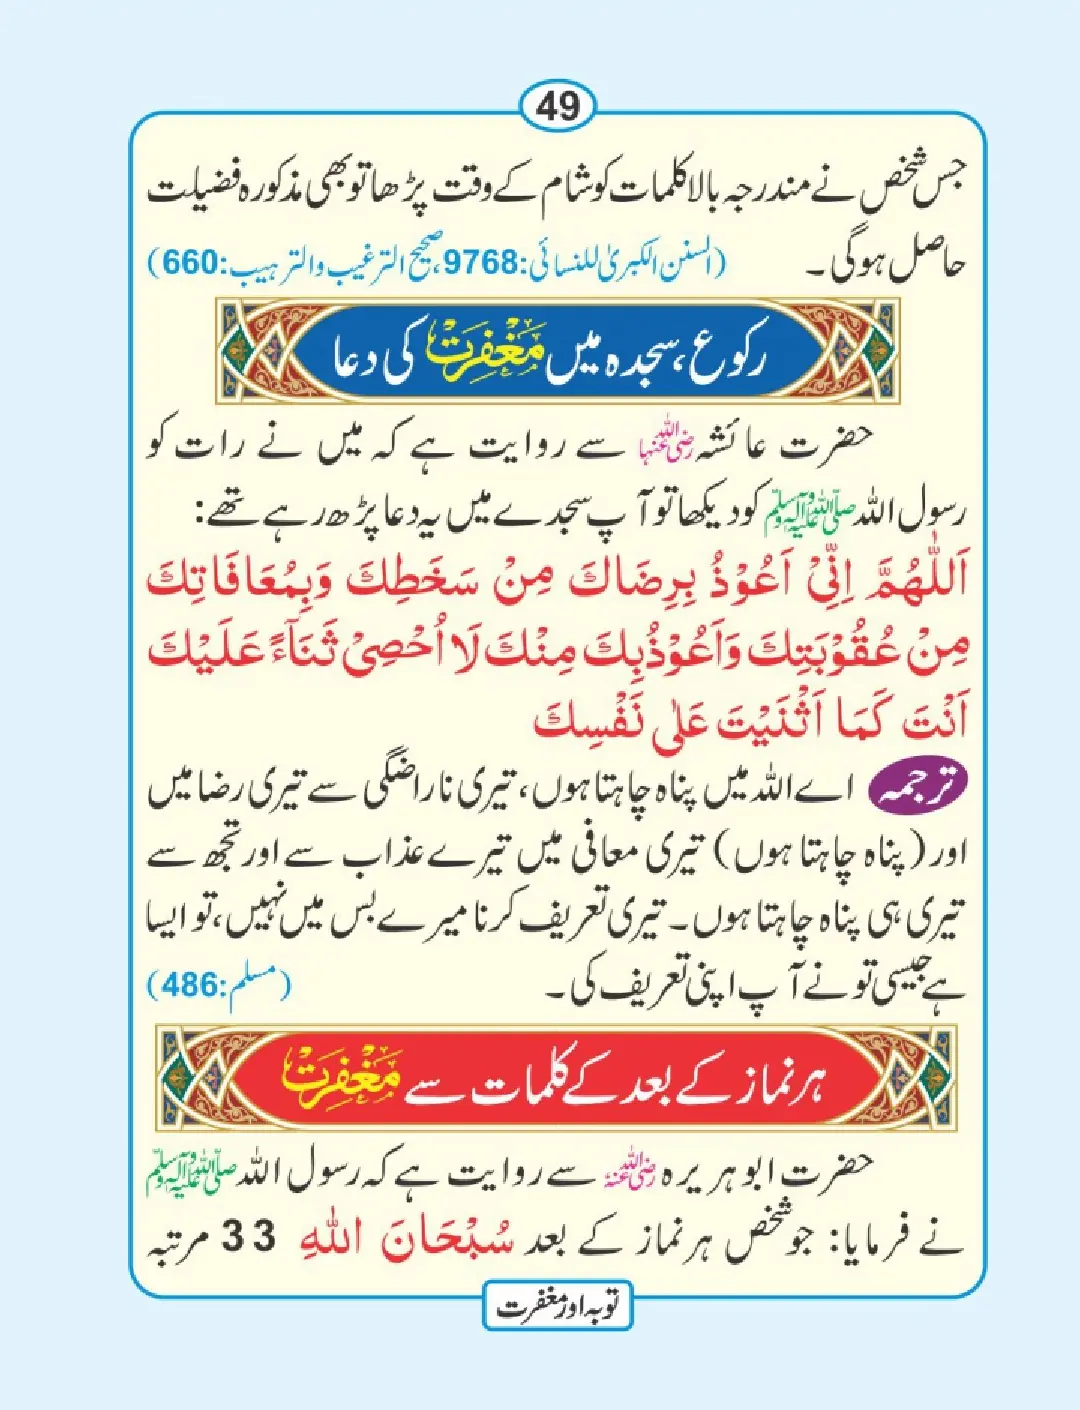 49
جس شخص نے مندرجہ بالا کلمات کو شام کے وقت پڑھا تو بھی مذکورہ فضیلت
حاصل ہوگی۔ (السنن الکبریٰ للنسائی:9768، صحیح الترغیب والترہیب:660)
رکوع، سجدہ میں مَغْفِرَتْ کی دعا
حضرت عائشہ رضی اللہ عنہا سے روایت ہے کہ میں نے رات کو
رسول اللہ صلی اللہ علیہ وآلہ وسلم کو دیکھا تو آپ سجدے میں یہ دعا پڑھ رہے تھے:
اَللّٰهُمَّ اِنِّیْ اَعُوْذُ بِرِضَاكَ مِنْ سَخَطِكَ وَبِمُعَافَاتِكَ
مِنْ عُقُوْبَتِكَ وَاَعُوْذُبِكَ مِنْكَ لَا اُحْصِیْ ثَنَآءً عَلَيْكَ
اَنْتَ كَمَا اَثْنَيْتَ عَلٰی نَفْسِكَ
ترجمہ اے اللہ میں پناہ چاہتا ہوں، تیری ناراضگی سے تیری رضا میں
اور (پناہ چاہتا ہوں) تیری معافی میں تیرے عذاب سے اور تجھ سے
تیری ہی پناہ چاہتا ہوں۔ تیری تعریف کرنا میرے بس میں نہیں، تو ایسا
ہے جیسی تو نے آپ اپنی تعریف کی۔ (مسلم:486)
ہر نماز کے بعد کے کلمات سے مَغْفِرَتْ
حضرت ابو ہریرہ رضی اللہ عنہ سے روایت ہے کہ رسول اللہ صلی اللہ علیہ وآلہ وسلم
نے فرمایا: جو شخص ہر نماز کے بعد سُبْحَانَ اللهِ 33 مرتبہ
توبہ اور مغفرت